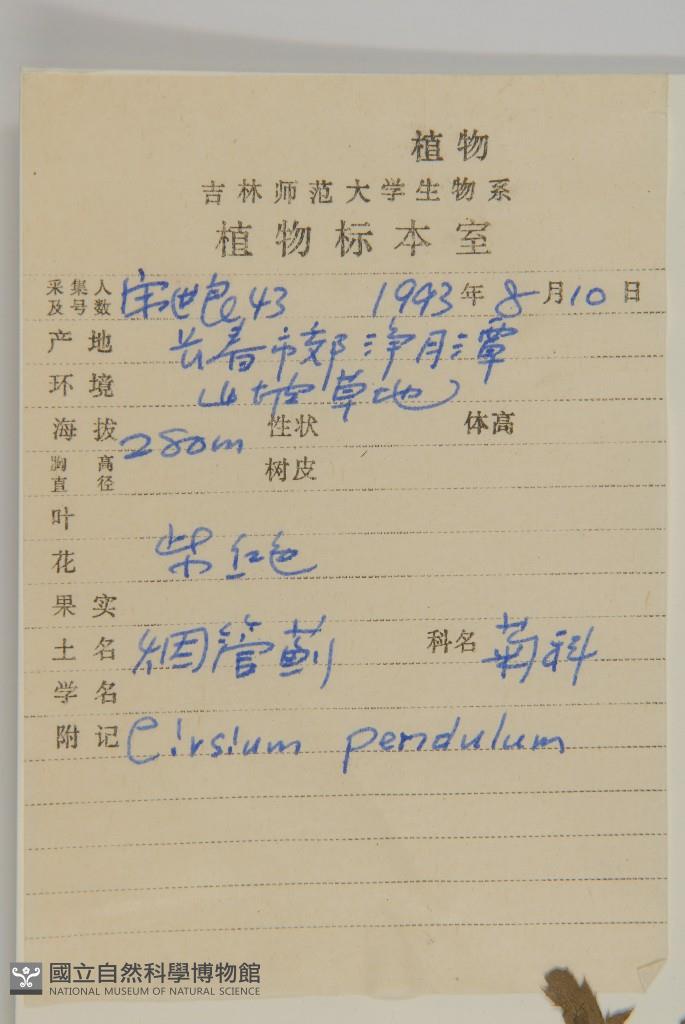 植物
吉林师范大学生物系
植物标本室
采集人及号数 宋世良 43 1993年8月10日
产地 长春市郊净月潭
环境 山坡草地
海拔 280m 性状 体高
胸高直径 树皮
叶
花 紫红色
果实
土名 烟管蓟 科名 菊科
学名
附记 Cirsium pendulum
國立自然科學博物館
NATIONAL MUSEUM OF NATURAL SCIENCE